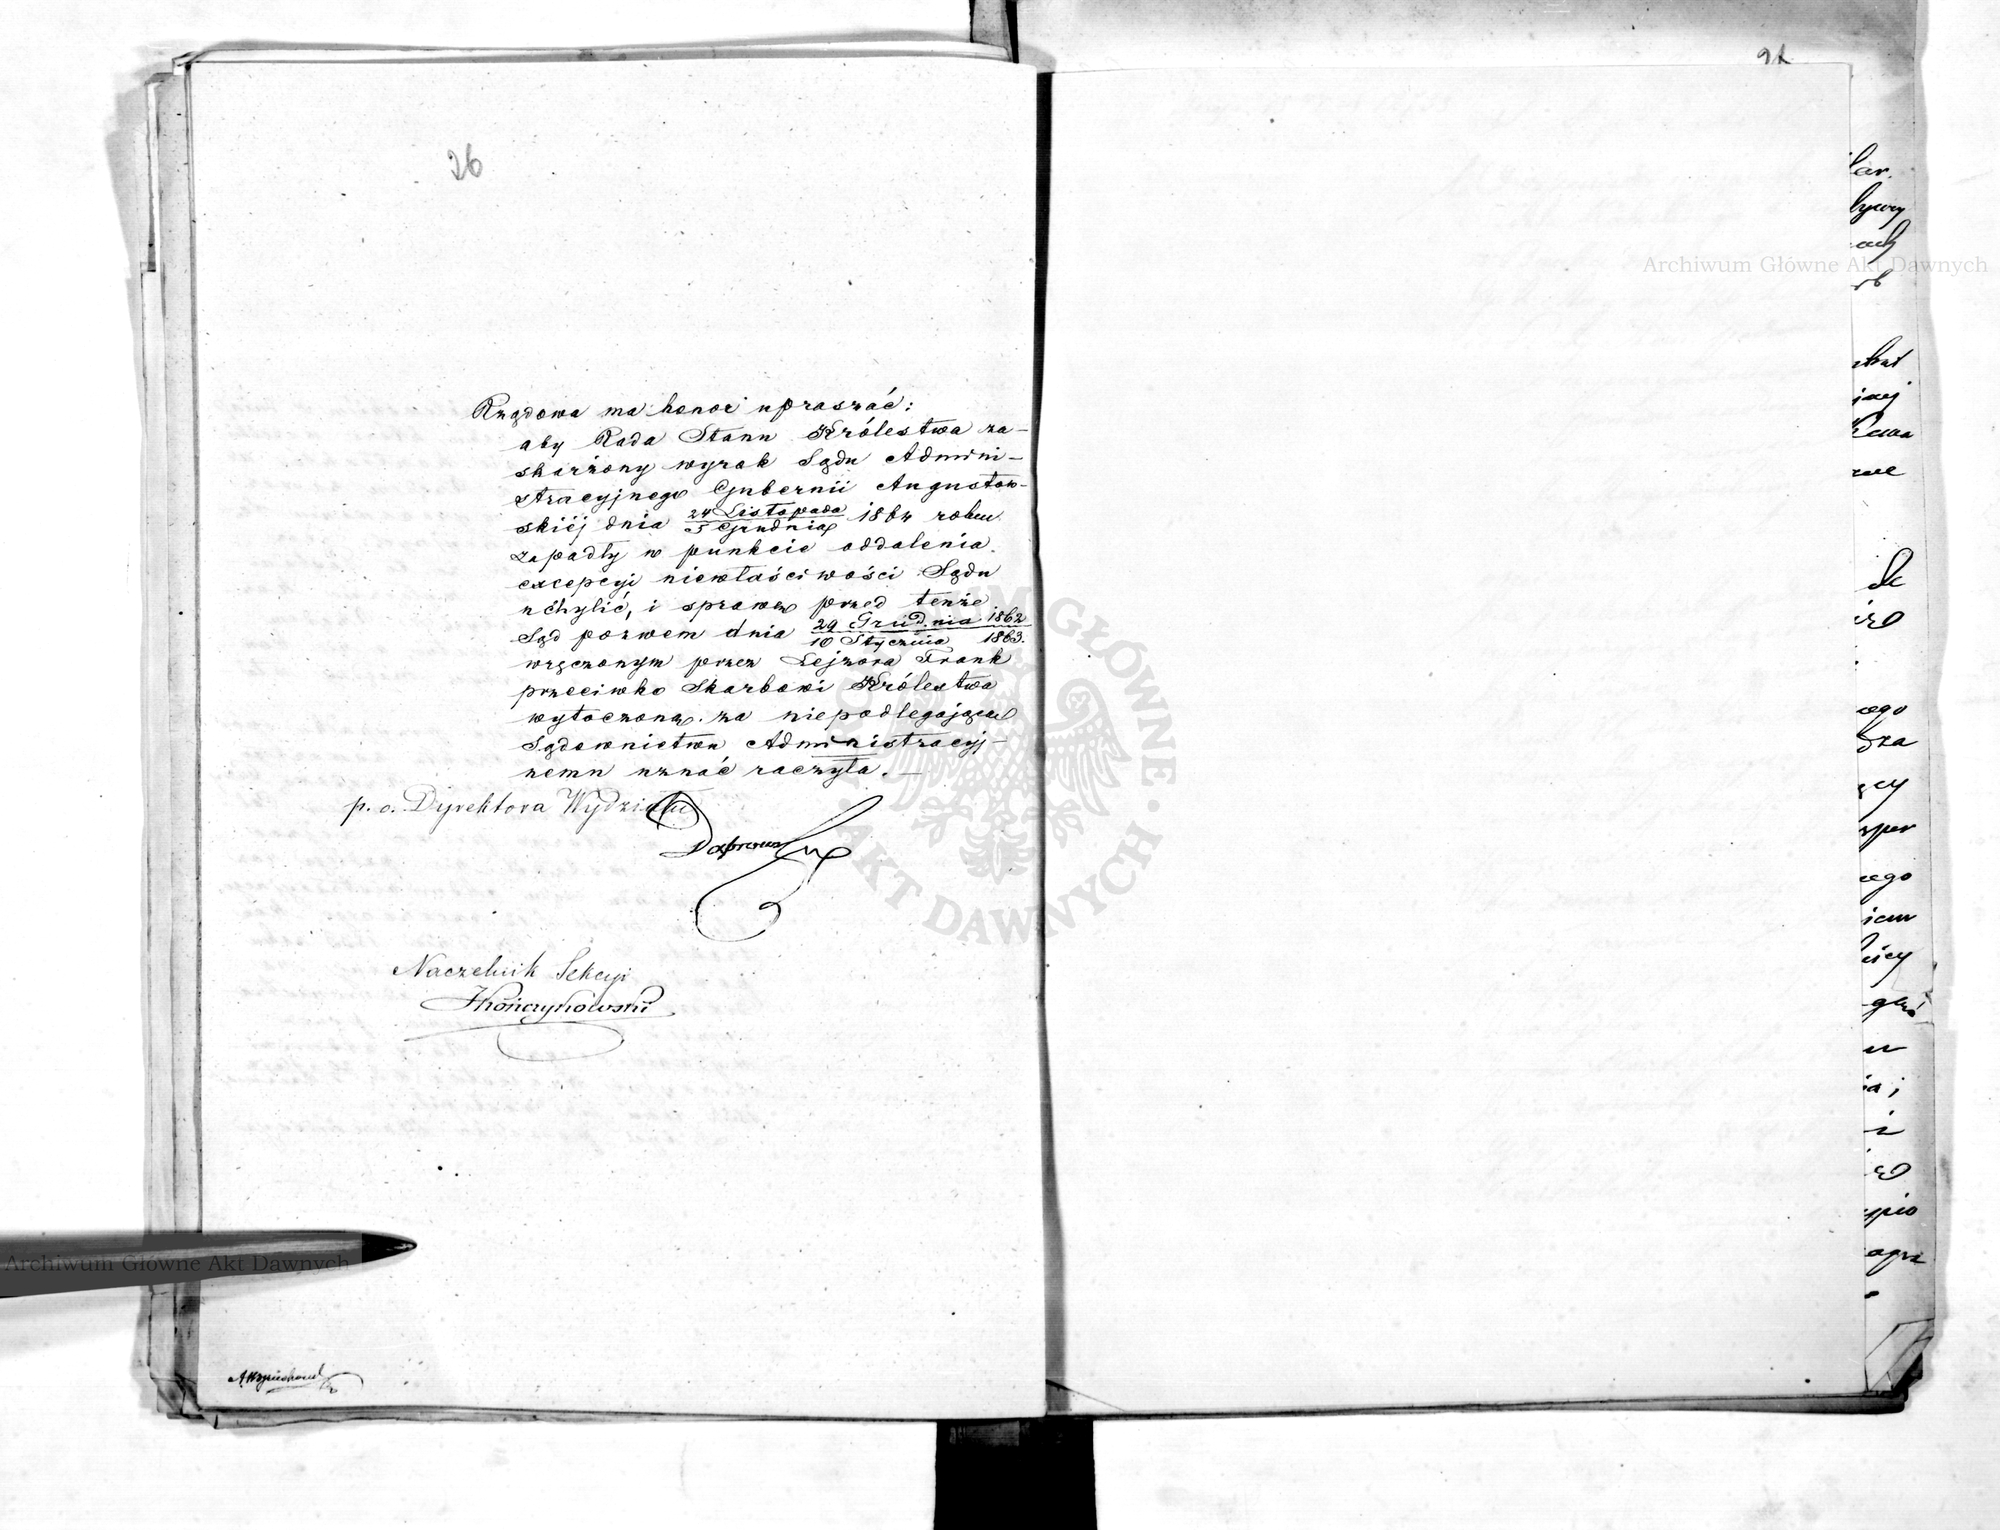 26
Rządowa ma honor upraszać:
aby Rada Stanu Królestwa za-
skarżony wyrok Sądu Admini-
stracyjnego Gubernii Augustow-
skiéj dnia 24 Listopada / 5 Grudnia 1864 roku
zapadły w punkcie oddalenia
excepcyi niewłaściwości Sądu
uchylić, i sprawę przed tenże
Sąd pozwem dnia 29 Grudnia 1862 / 10 Stycznia 1863.
wręczonym przez Lejzora Frank
przeciwko Skarbowi Królestwa
wytoczoną za niepodlegającą
Sądownictwu Administracyj-
nemu uznać raczyła. —
p. o. Dyrektora Wydziału
Naczelnik Sekcyi
Archiwum Główne Akt Dawnych
Archiwum Główne Akt Dawnych
GŁÓWNE · AKT DAWNYCH ·